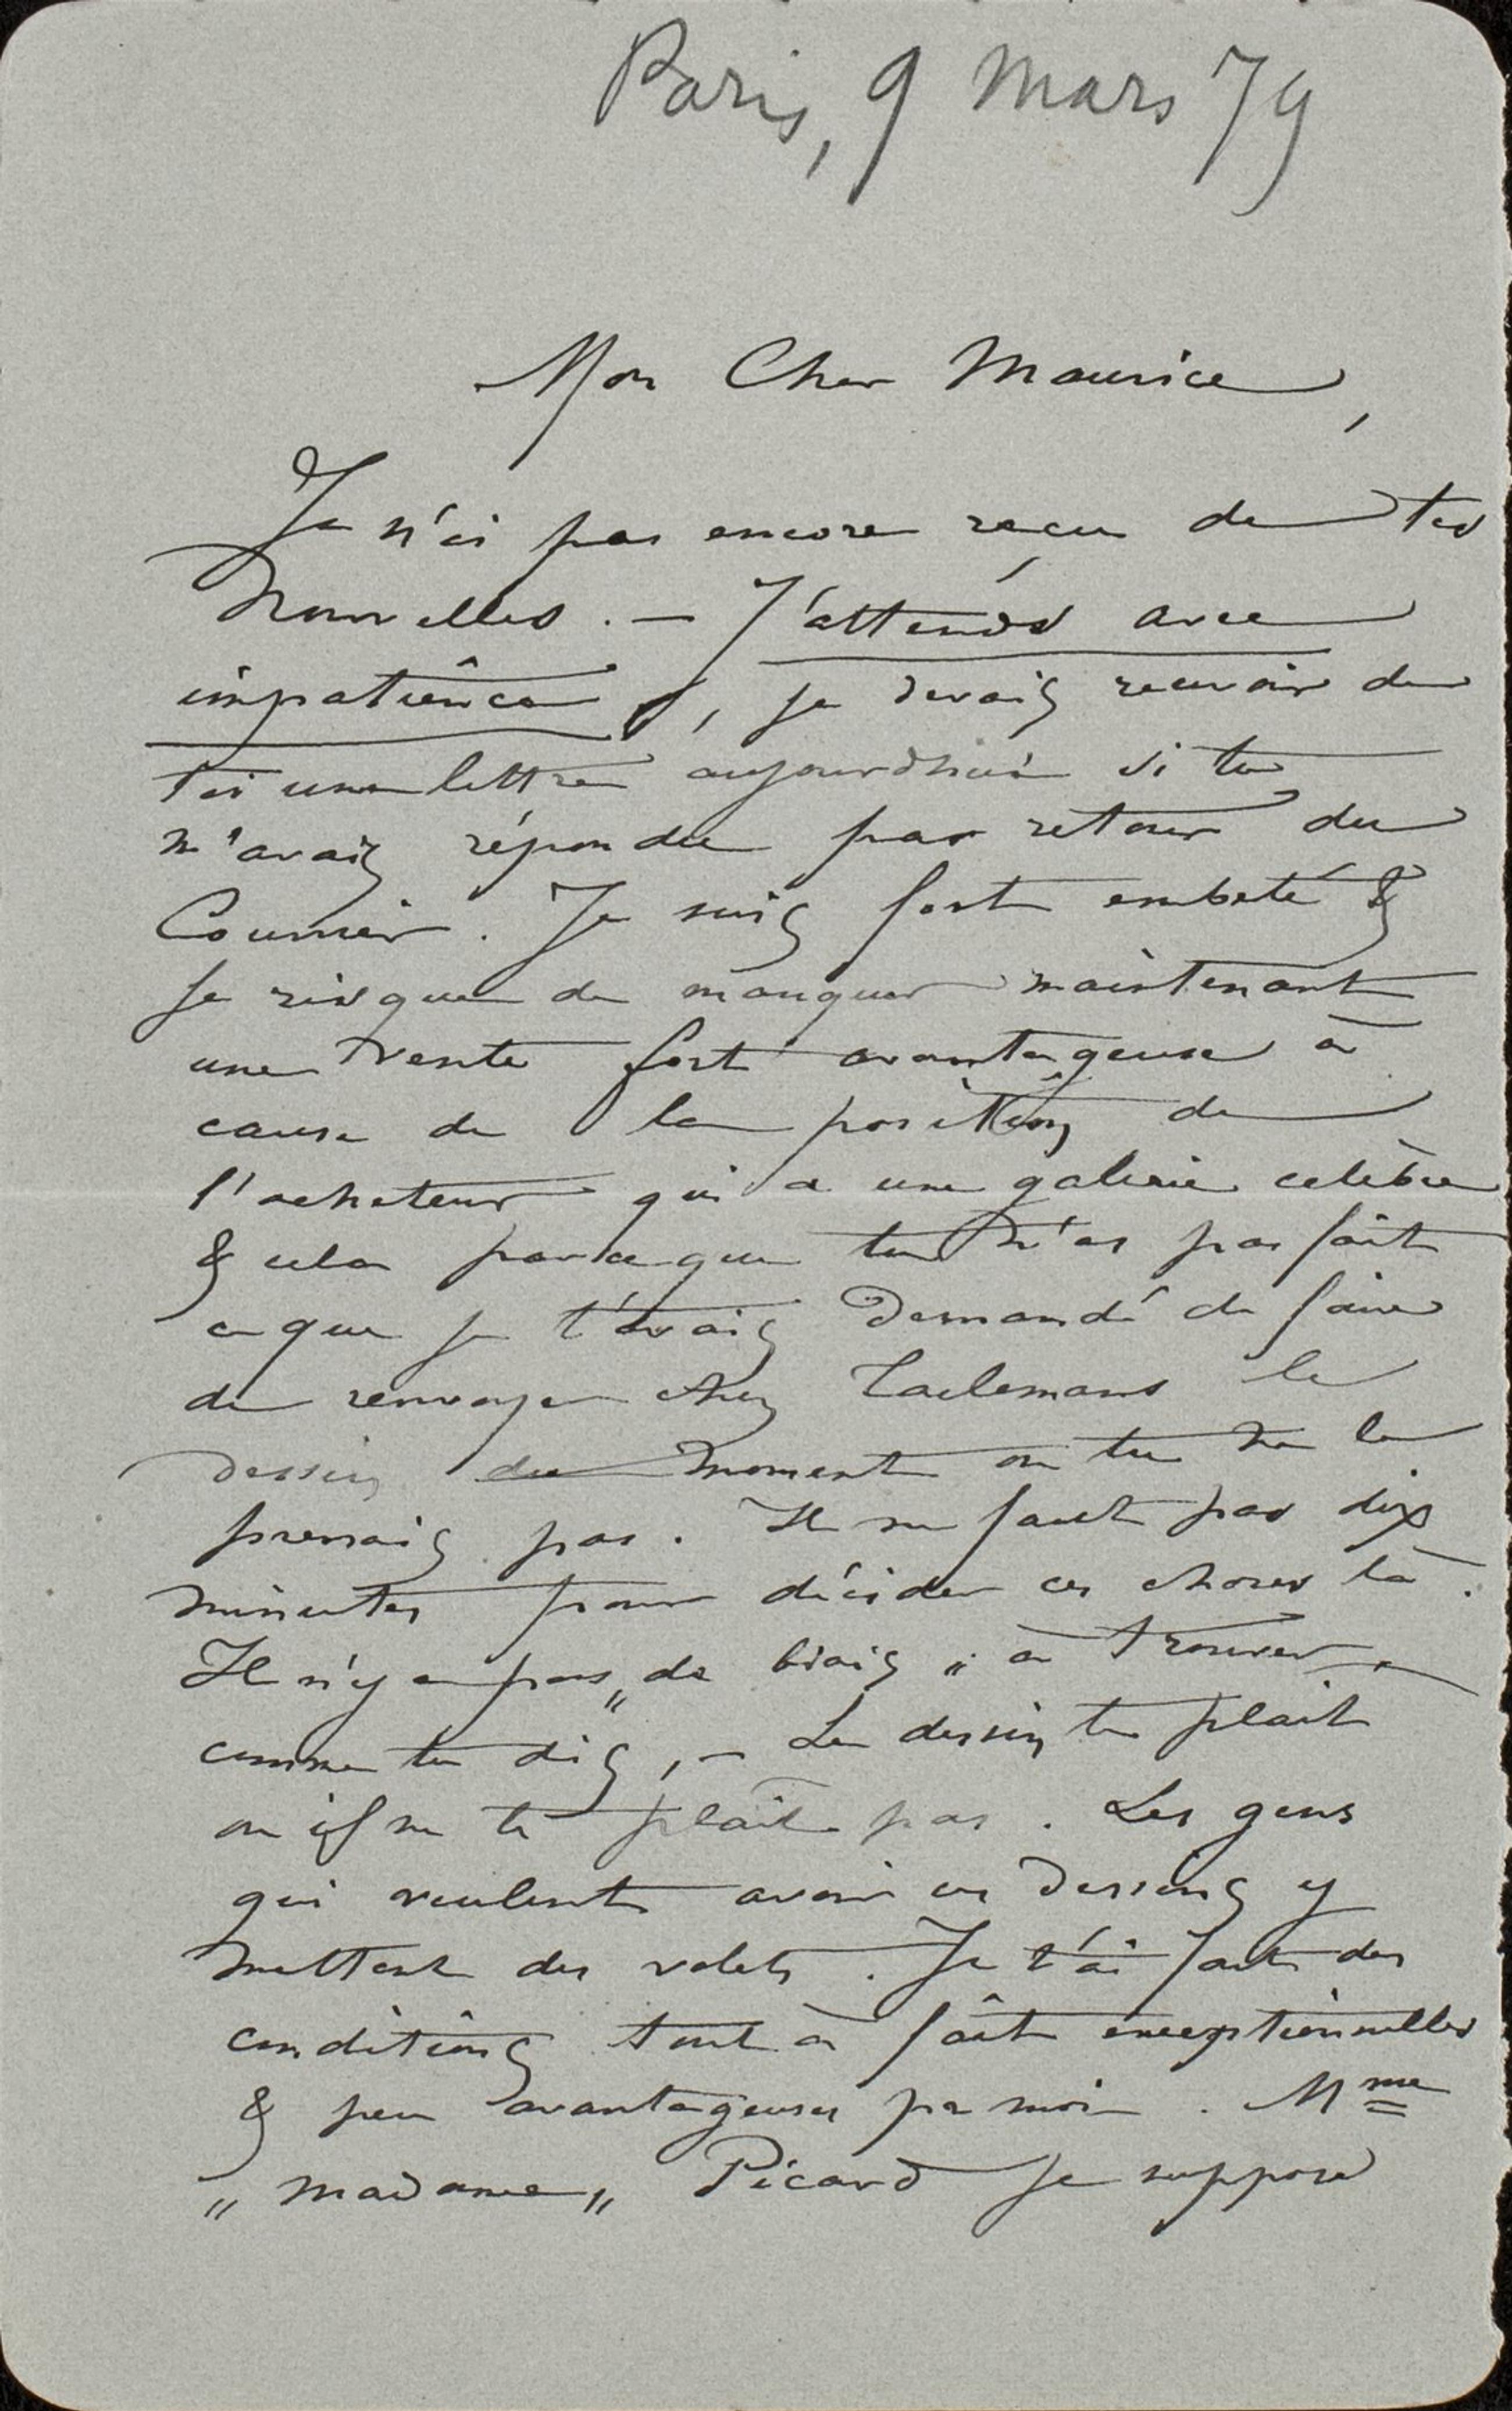 Paris, 9 Mars 79
Mon Cher Maurice,
Je n'ai pas encore reçu de tes
Nouvelles. — J'attends avec
impatience, je devais recevoir de
toi une lettre aujourdhui si tu
m'avais répondu par retour du
Courrier. Je suis fort embeté &
je risque de manquer maintenant
une vente fort avantageuse à
cause de la position de
l'acheteur qui a une galerie celèbre
& cela parceque tu n'as pas fait
ce que je t'avais demandé de faire
de renvoyer chez Taelemans le
dessin du moment où tu ne le
prenais pas. Il ne faut pas dix
minutes pour décider ces choses là.
Il n'y a pas „de biais„ à trouver
comme tu dis, — Le dessin te plait
ou il ne te plaît pas. Les gens
qui veulent avoir ces dessins y
mettent des volets. Je t'ai fait des
conditions tout à fait exceptionnelles
& peu avantageuses pr moi. Mme
„Madame„ Picard je suppose